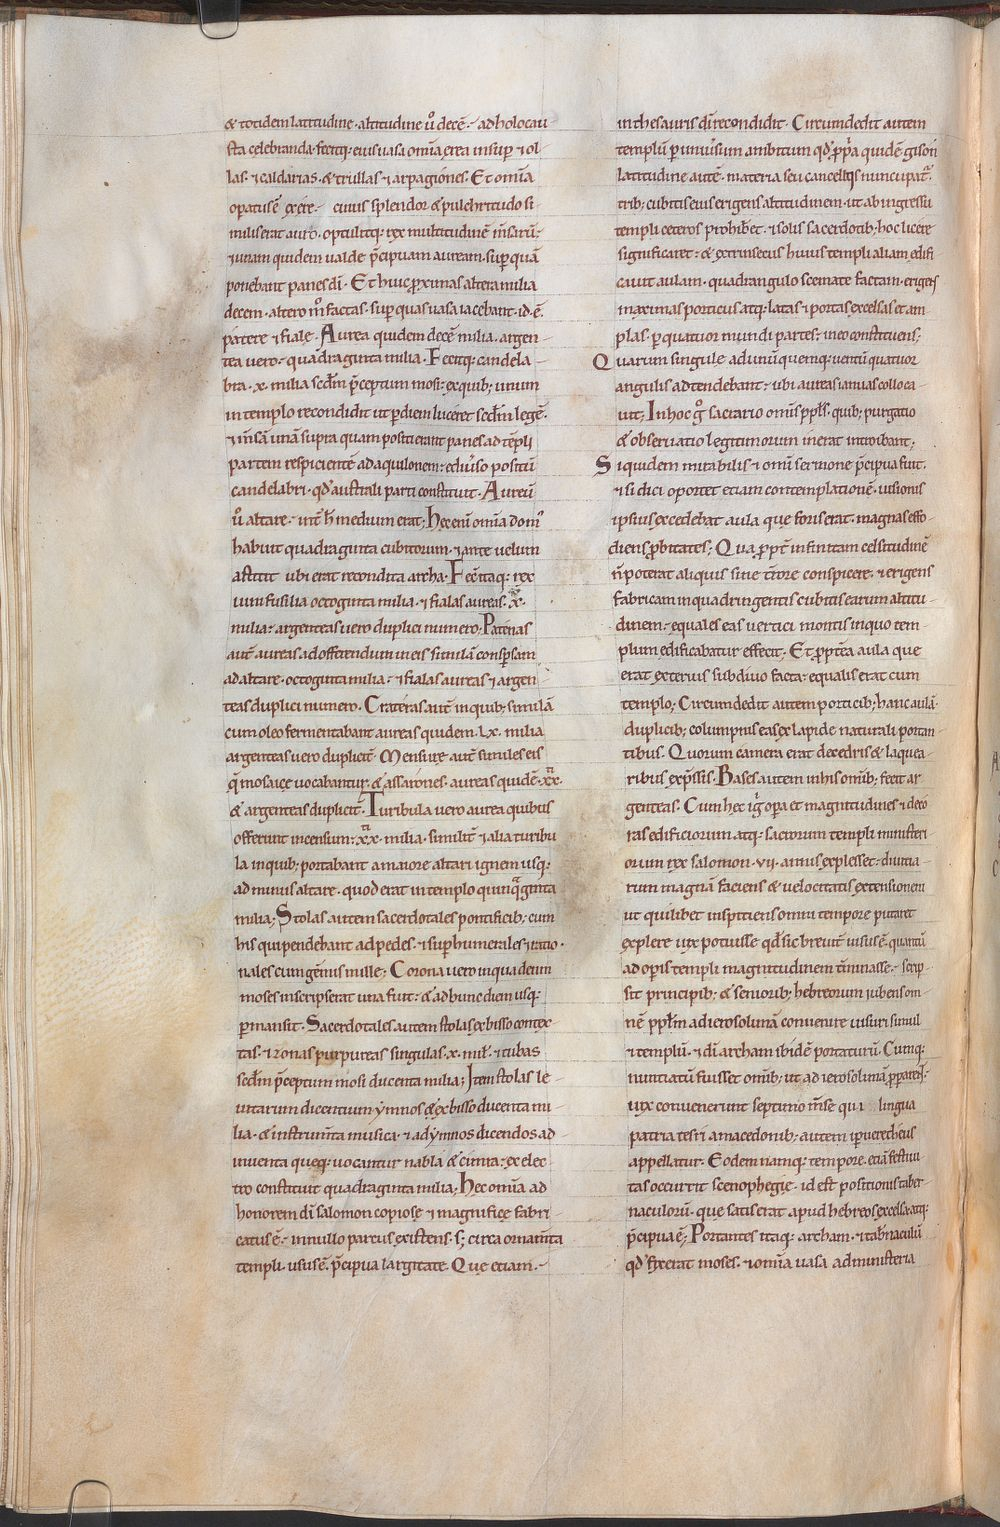 & totidem latitudine · altitudine u̾o decē · ad holocau
sta celebranda · fecitq; eius uasa omīa ęrea insup̱ ⁊ ol-
las · ⁊ caldarias · & trullas ⁊ arpagiones · Et omīa
op̱atus ē ex ęre · cuius splendor & pulchritudo si
milis erat auro · optulitq; rex multitudinē m̄sarū ·
⁊ unam quidem ualde p̄cipuam auream · sup̱ quā
ponebant panes dī · Et huic p̱ximas altera milia
decem · altero m̊ factas · sup̱ quas uasa iacebant · id · ē ·
patere ⁊ fiale · Aurea quidem decē milia · argen-
tea uero · quadraginta milia · Fecitq; candela-
bra · x · milia scd̄m p̄ceptum mosi · ex quib; unum
in templo recondidit ut p̱ diem luceret scd̄m legē ·
⁊ m̄sā unā supra quam positi erant panes ad tēpli
partem respicientē ad aquilonem · e diu̾so positū
candelabri · qd̾ australi parti constituit · Aureū
u̾o altare · int̄ h̄ medium erat; Hec enī omīa dom̾
habuit quadraginta cubitorum · ⁊ ante uelum
astitit ubi erat recondita archa · Fec̄ itaq; rex
uini fusilia octoginta milia · ⁊ fialas aureas · x ·
milia · argenteas uero duplici numero; Patenas
aut̄ aureas ad offerendum in eis similā consp̱sam
ad altare · octoginta milia · ⁊ fialas aureas ⁊ argen-
teas duplici numero · Crateras aut̄ in quib; similā
cum oleo fermentabant aureas quidem · lx · milia
argenteas uero duplicit̄ · Mensure aut̄ similes eis
q̄ mosaice uocabantur & assarones · aureas quidē · xx ·
& argenteas duplicit̄ · Turibula uero aurea quibus
offerunt incensum · xx · milia · similit̄ ⁊ alia turibu
la in quib; portabant a maiore altari ignem usq;
ad minus altare · quod erat in templo quinq̾ginta
milia; Stolas autem sacerdotales pontificib; cum
his qui pendebant ad pedes · ⁊ sup̱humerales ⁊ ratio ·
nales cum gēmis mille; Corona uero in qua deum
moses inscripserat una fuit · & ad hunc diem usq;
p̱mansit · Sacerdotales autem stolas ex bisso contex-
tas · ⁊ zonas purpureas singulas · x · mil̄ · ⁊ tubas
scd̄m p̄ceptum mosi ducenta milia; Item stolas le-
uitarum dicentium ymnos & ex bisso ducenta mi-
lia · & instrum̄ta musica · ⁊ ad ymnos dicendos ad
inuenta queq; uocantur nabla & cinira · ex elec-
tro constituit quadraginta milia; Hec omīa ad
honorem dī salomon copiose ⁊ magnifice fabri-
catus ē · in nullo parcus existens · s; circa ornam̄ta
templi · usus ē · p̄cipua largitate · Que etiam ·
in thesauris dī recondidit · Circumdedit autem
templū p̱ uniu̾sum ambitum qd̾ p̱p̱a quidē gison
latitudine autē · materia seu cancellus nuncupat̾ ·
trib; cubitis eius erigens altitudinem · ut ab ingressu
templi ceteros prohib&et · ⁊ solis sacerdotib; hoc licere
significaret · & extrinsecus huius templi aliam edifi-
cauit aulam · quadrangulo scemate factam · erigens
maximas porticus atq; latas · ⁊ portas excelsas et am
plas · p̱ quatuor mundi partes · in eo constituens;
Quarum singule ad unūquemq; uentū quatuor
angulis adtendebant · ubi aureas ianuas colloca-
uit; In hoc g̊ sacrario omīs pp̱ls · quib; purgatio
& obseruatio legitimorum inerat introibant;
Siquidem mirabilis ⁊ omī sermone p̄cipua fuit ·
⁊ si dici oportet etiam contemplationē · uisionis
ipsius excedebat aula que foris erat · magnas effo-
diens p̱bitates; Qua p̱pt̄ infinitam celsitudinē
n̄ poterat aliquis sine t̄rore conspicere · ⁊ erigens
fabricam in quadringentis cubitis earum altitu-
dinem · equales eas uertici montis in quo tem-
plum edificabatur effecit · Et p̱pt̄ea aula que
erat exterius sub diuo facta · equalis erat cum
templo; Circumdedit autem porticib; hanc aulā ·
duplicib; columpnis eas ex lapide naturali portan-
tibus · Quorum camera erat de cedris & laquea-
ribus exp̱ssis · Bases autem in his omīb; fecit ar
genteas · Cum hec ig̾ op̱a et magnitudines ⁊ deco
ras edificiorum atq; sacrorum templi ministeri
orum rex salomon · vii · annis explesset · diuitia-
rum magnā faciens & uelocitatis extensionem
ut quilibet inspitiens omni tempore putaret
explere uix potuisse qd̾ sic breuit̄ uisus ē · quantū
ad op̱is templi magnitudinem t̄minasse · scrip-
sit principib; & seniorib; hebreorum iubens om-
nē pp̱l̄m ad ierosolimā conuenire uisuri simul
⁊ templū · ⁊ dī archam ibidē portaturū · Cumq;
nuntiatū fuisset omīb; ut ad ierosolimā p̱p̱arent ·
uix conuenerunt septimo m̄se qui lingua
patria tesri a macedonib; autem ip̱uerecheus
appellatur · Eodem namq; tempore · etiā festiui-
tas occurrit scenophegie · id est positionis taber-
naculorū · que satis erat apud hebreos excelsa atq;
p̄cipua ē; Portantes itaq; archam · ⁊ tab̄naculū
qd̾ fixerat moses · ⁊ omīa uasa administeria